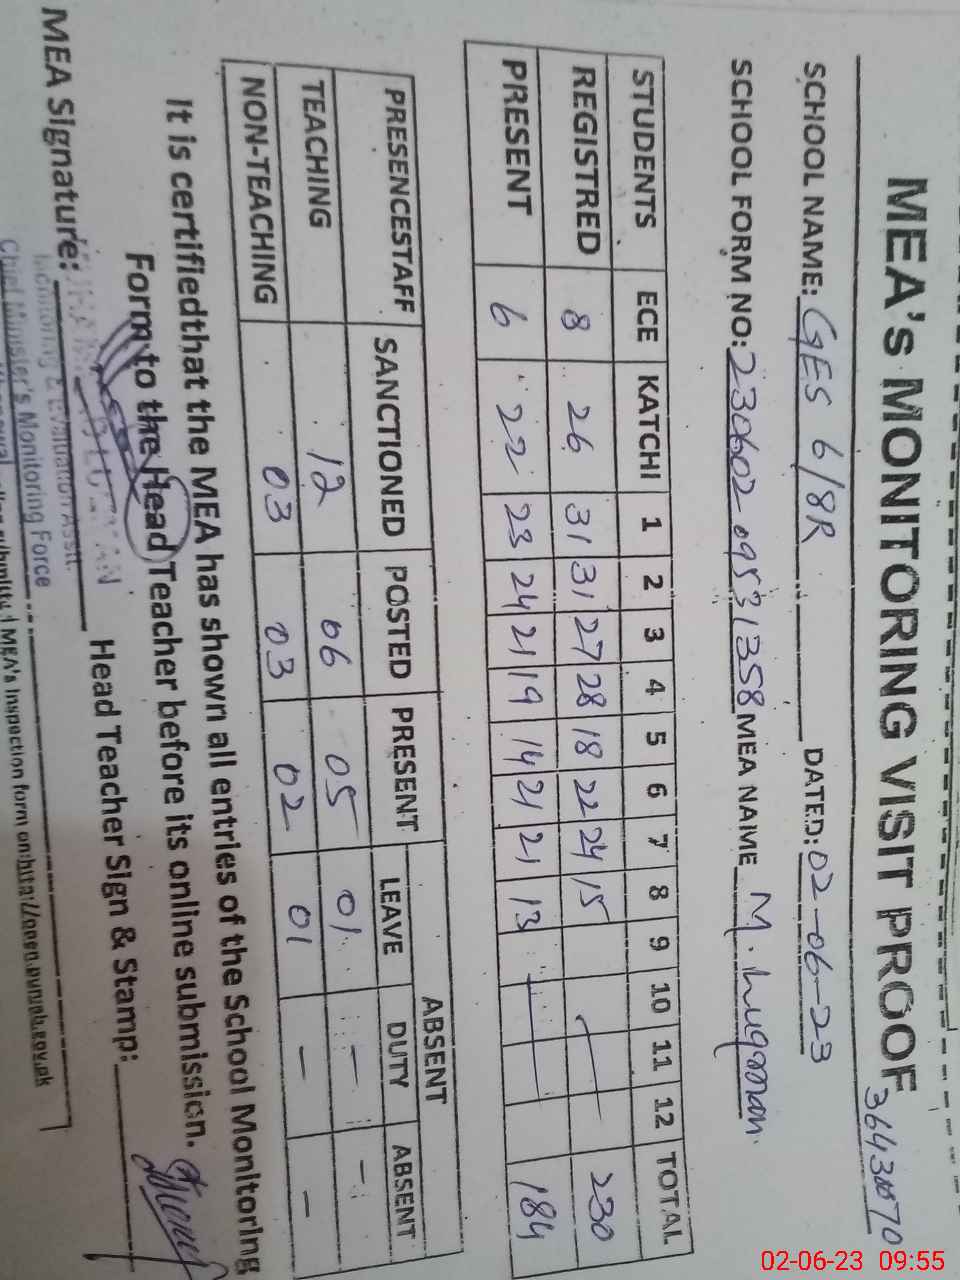 MEA's MONITORING VISIT PROOF
SCHOOL NAME: GES 6/8R DATED: 02-06-23
SCHOOL FORM NO: MEA NAME M. Luqman.
STUDENTS ECE KATCHI 1 2 3 4 5 6 7 8 9 10 11 12 TOTAL
REGISTRED 8 26 31 31 27 28 18 22 24 15 230
PRESENT 6 22 23 24 21 19 14 21 21 13 184
PRESENCESTAFF SANCTIONED POSTED PRESENT ABSENT
LEAVE DUTY ABSENT
TEACHING 12 06 05 01 - -
NON-TEACHING 03 03 02 01 - -
It is certifiedthat the MEA has shown all entries of the School Monitoring
Form to the Head Teacher before its online submission.
MEA Signature: Head Teacher Sign & Stamp:
Monitoring & Evaluation Asstt.
Chief Minister's Monitoring Force
MEA's Inspection form on:
02-06-23 09:55